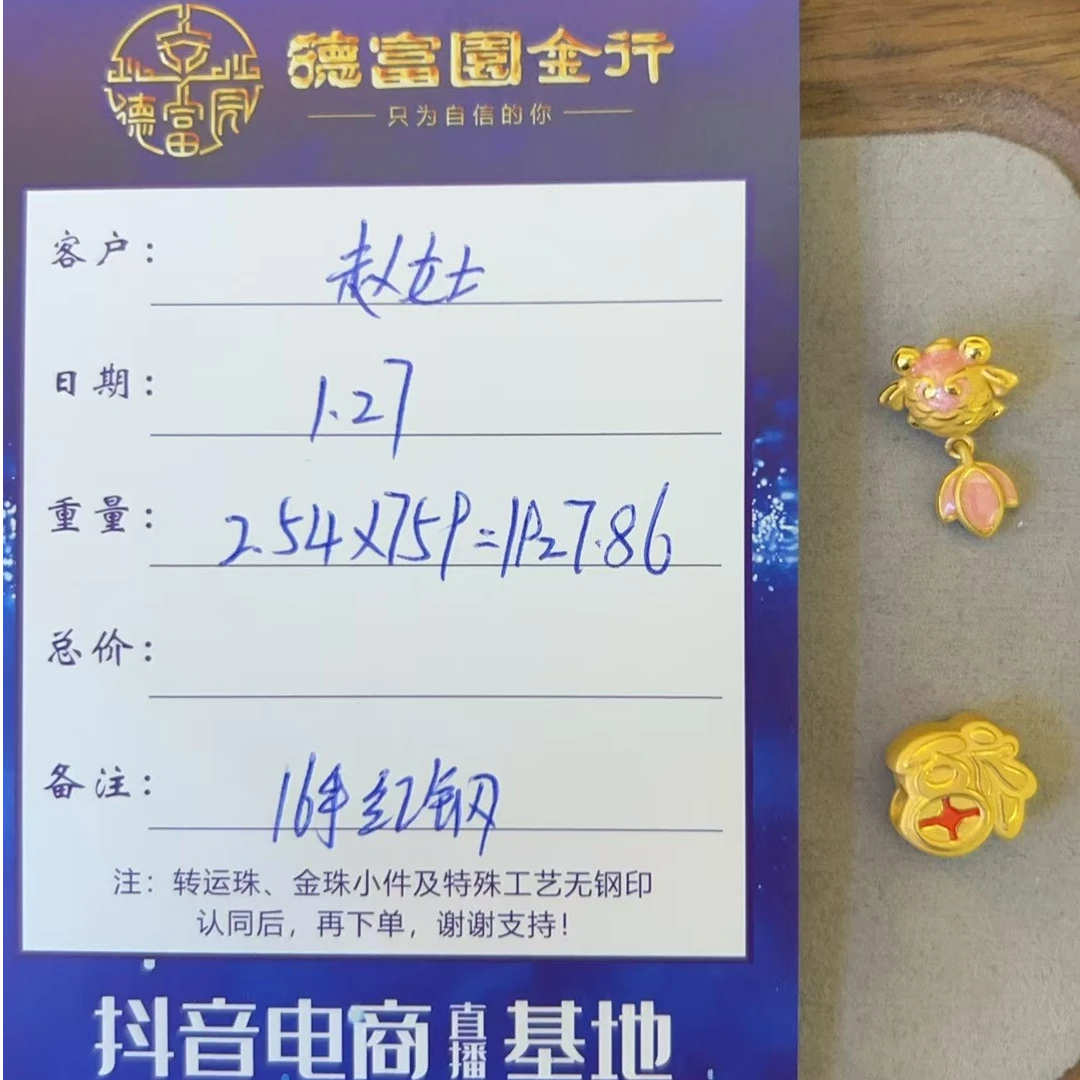 德富园
德富園金行
只为自信的你
客户：赵女士
日期：1.27
重量：2.54×759=1927.86
总价：
备注：16手红钢
注：转运珠、金珠小件及特殊工艺无钢印
认同后，再下单，谢谢支持！
抖音电商直播基地